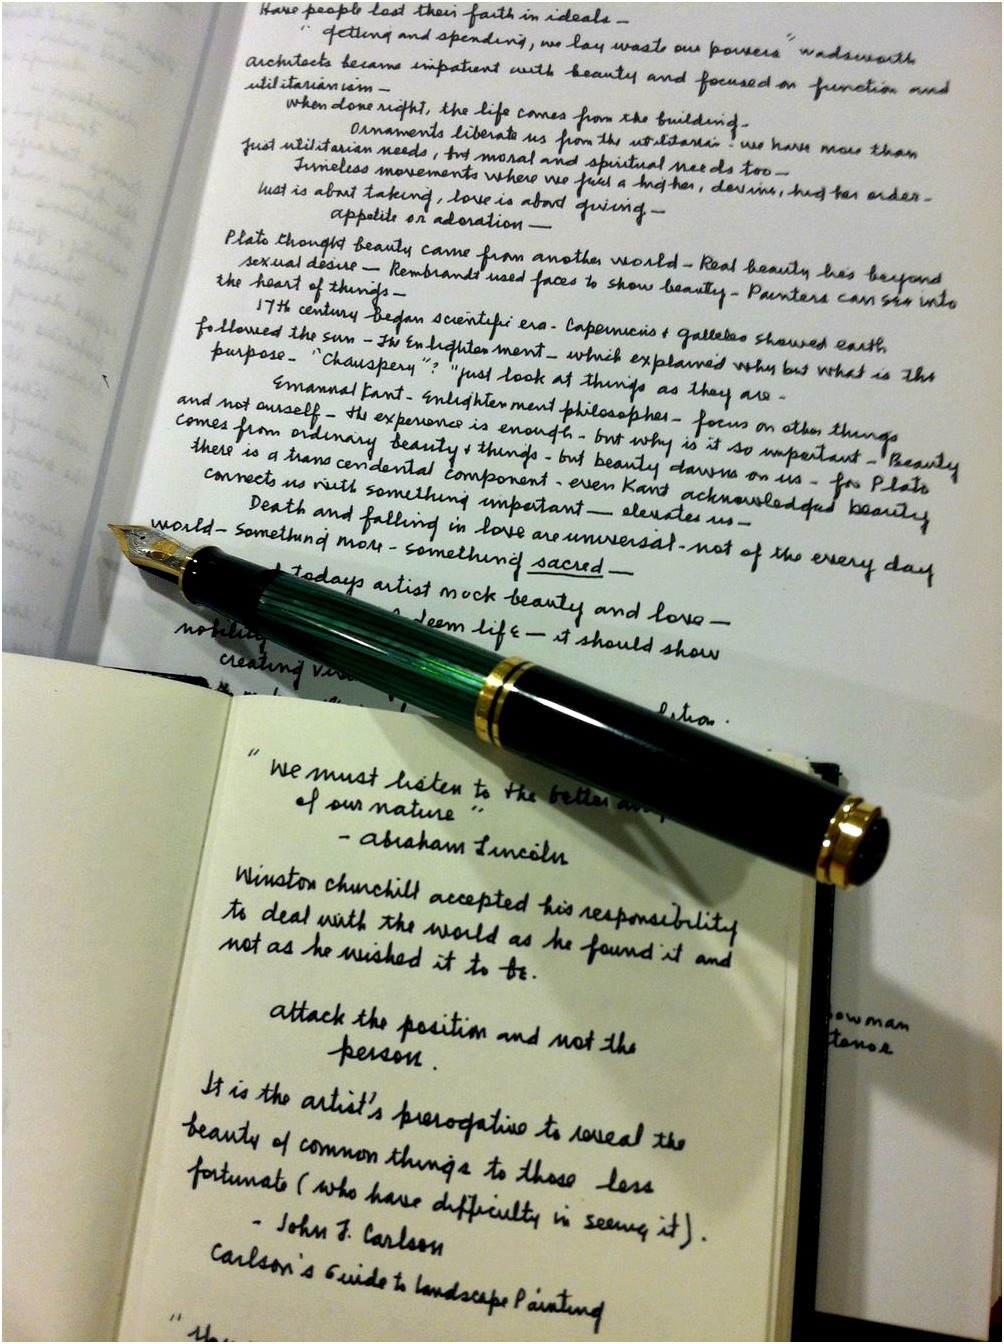 Have people lost their faith in ideals —
"getting and spending, we lay waste our powers" wadsworth
architects became impatient with beauty and focused on function and
utilitarianism —
when done right, the life comes from the building —
Ornaments liberate us from the utilitaria. we have more than
just utilitarian needs, but moral and spiritual needs too —
Timeless movements where we feel a higher, devine, higher order —
lust is about taking, love is about giving —
appetite or adoration —
Plato thought beauty came from another world — Real beauty lies beyond
sexual desire — Rembrandt used faces to show beauty — Painters can see into
the heart of things —
17th century began scientific era — Copernicus + galleleo showed earth
followed the sun — The Enlightenment — which explained why but what is the
purpose — "Chauspery"? "just look at things as they are —
Emannal Kant — Enlightenment philosopher — focus on other things
and not ourself — the experience is enough — but why is it so important — Beauty
comes from ordinary beauty + things — but beauty dawns on us — for Plato
there is a transcendental component — even Kant acknowledged beauty
connects us with something important — elevates us —
Death and falling in love are universal — not of the every day
world — something more — something sacred —
todays artist mock beauty and love —
deem life — it should show
nobility
creating
"We must listen to the better
of our nature"
- Abraham Lincoln
Winston Churchill accepted his responsibility
to deal with the world as he found it and
not as he wished it to be.
attack the position and not the
person.
It is the artist's prerogative to reveal the
beauty of common things to those less
fortunate (who have difficulty in seeing it).
- John F. Carlson
Carlson's Guide to Landscape Painting
bowman
tenor